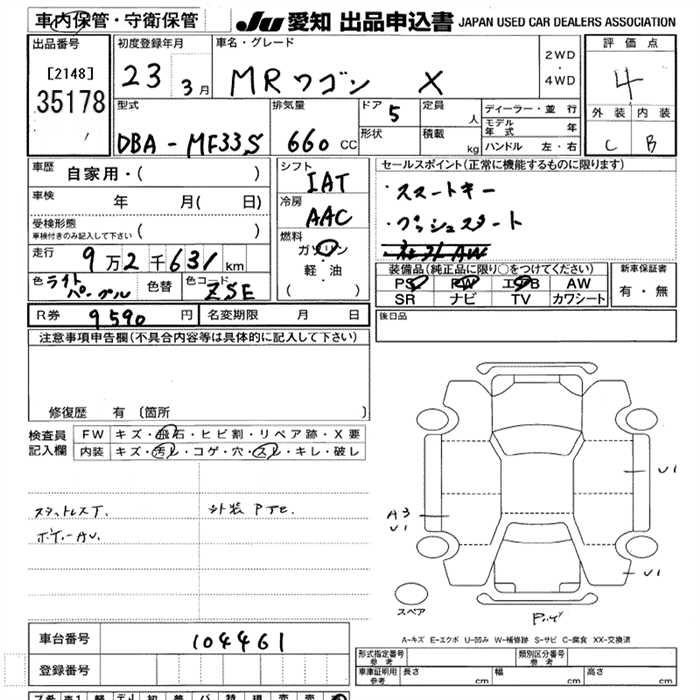 車内保管・守衛保管
JU 愛知 出品申込書 JAPAN USED CAR DEALERS ASSOCIATION
出品番号 初度登録年月 車名・グレード 2WD・4WD 評価点
[2148] 23 3月 MRワゴン X 4
35178
型式 排気量 ドア 5 定員 人 ディーラー・並行 外装 内装
DBA-MF33S 660 CC 形状 積載 kg モデル年式 年 C B
ハンドル 左・右
車歴 自家用・( ) シフト IAT セールスポイント(正常に機能するものに限ります)
車検 年 月( 日) 冷房 AAC ・スマートキー
受検形態 車検付きのみ記入して下さい ( ) 燃料 ・プッシュスタート
走行 9万2千631km ガソリン
軽・油
( )
色 ライトパープル 色替 色コード ZSE
装備品(純正品に限り○をつけてください) 新車保証書
PS PW エアB AW 有・無
SR ナビ TV カワシート
R券 9590円 名変期限 月 日 後日品
注意事項申告欄(不具合内容等は具体的に記入して下さい)
修復歴 有〔箇所 〕
検査員記入欄 FW キズ・飛石・ヒビ割・リペア跡・X要
内装 キズ・汚れ・コゲ・穴・スレ・キレ・破レ
スタットレスT. 外装
U1
A3
U1
U1
スペア
A-キズ E-エクボ U-凹み W-補修跡 S-サビ C-腐食 XX-交換済
車台番号 104461
登録番号
形式指定番号 参考 類別区分番号 参考
車庫証明用 参考 長さ cm 幅 cm 高さ cm